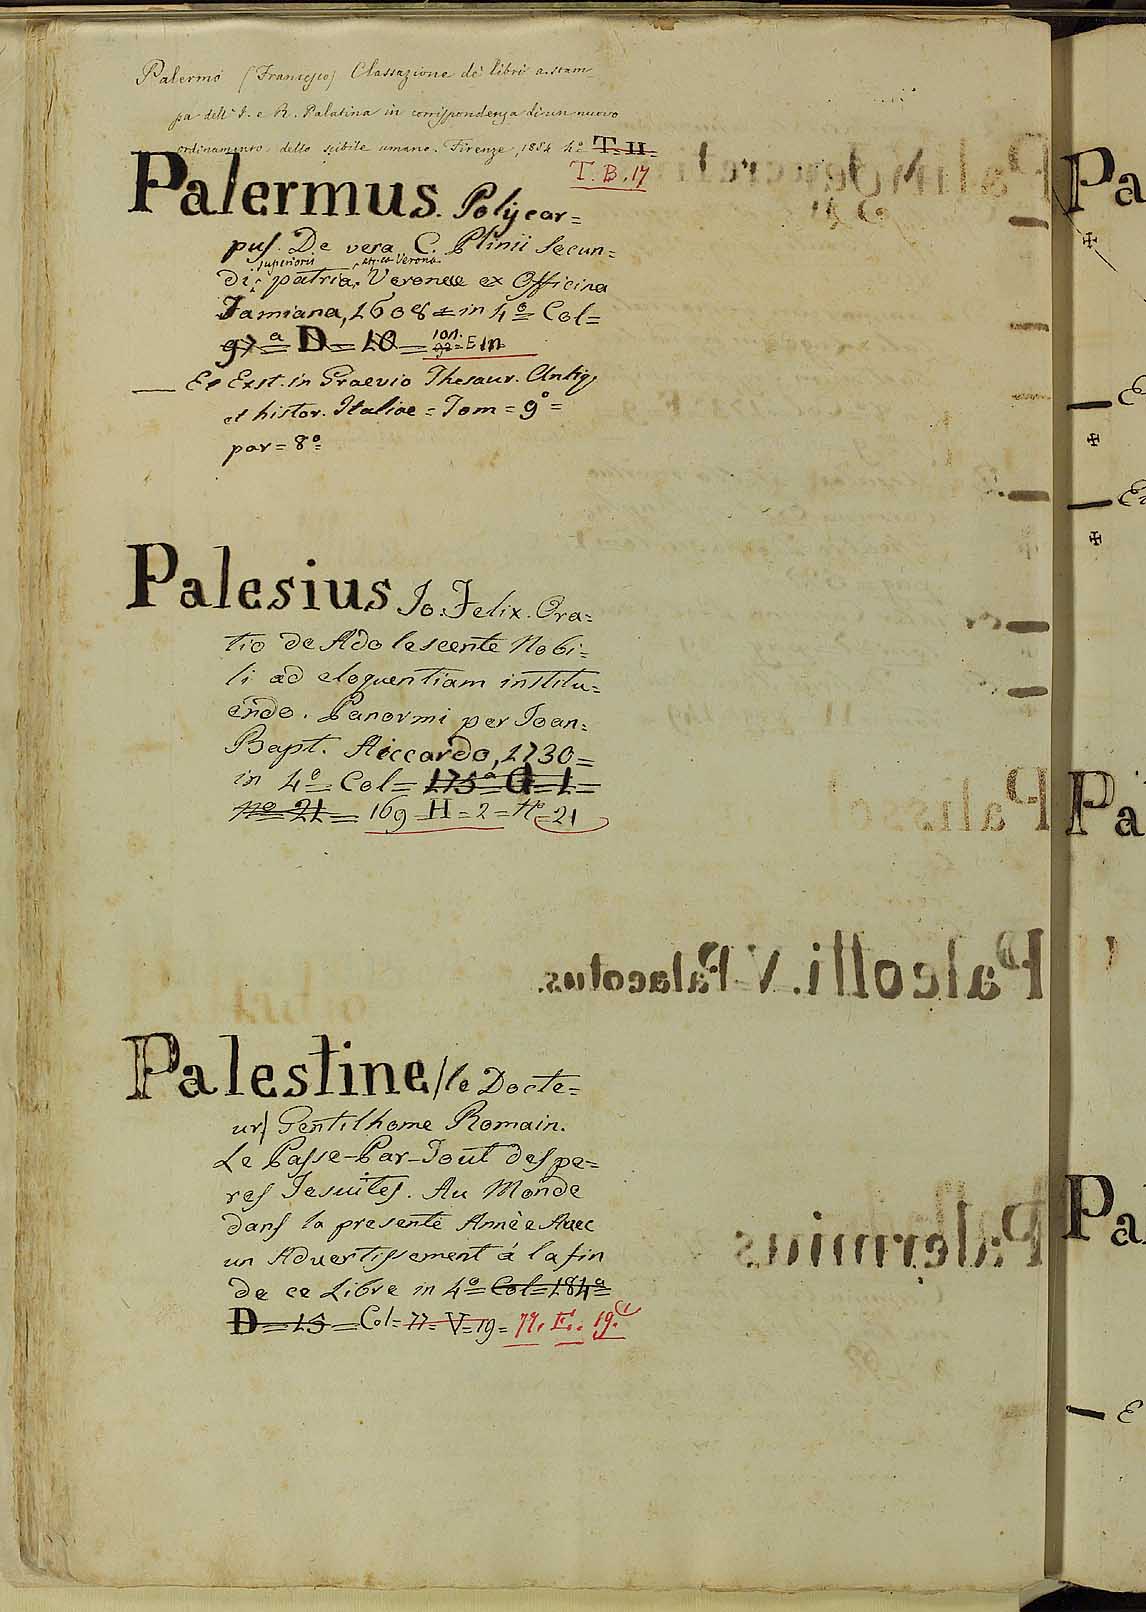 Palermo (Francesco) Classazione de' libri a stam-
pa dell' I. e R. Palatina in corrispondenza di un nuovo
ordinamento dello scibile umano. Firenze, 1854 4º T. II.
T. B. 17
Palermus. Polycar=
pus. De vera C. Plinii Secun=
superioris
di patria. Veronae ex Officina
Tamiana, 1608 = in 4º= Col=
97ª= D= 10= 101. E III
— Et Exst. in Graevio Thesaur. Antiq,
et histor. Italiae = Tom = 9º=
par= 8ª
Palesius Jo. Felix. Ora=
tio de Adolescente Nobi=
li ad eloquentiam institu=
endo. Panormi per Joan:
Bapt. Aiccardo, 1730=
in 4º= Col= 175ª= G= 1=
nº 21= 169 H= 2= Nº= 21
Palestine/le Docte=
ur/ Gentilhome Romain.
Le Passe-Par-Tout des pe=
res Jesuites. Au Monde
dans la presente Annèe Avec
un Advertissement á la fin
de ce Libre in 4º= Col= 184ª=
D= 13= Col= 77= V= 19= 77. E. 19.